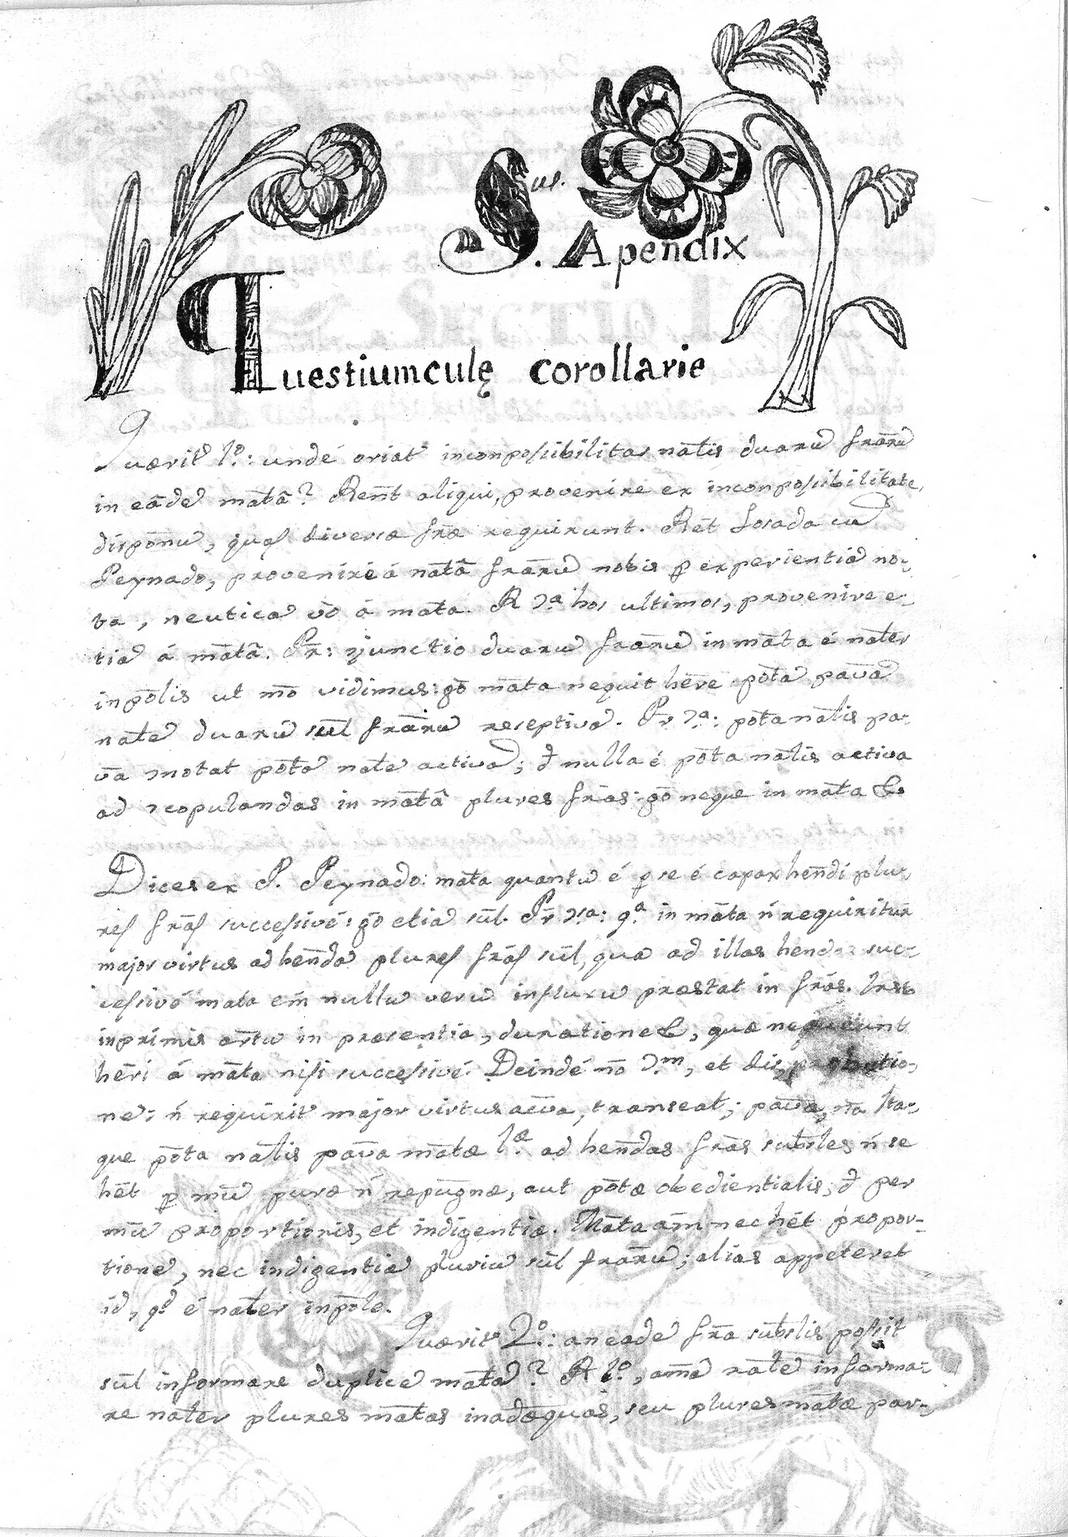 S.us. Apendix
Questiumculę corollarie
Quærit.r 1.o: unde oriat.r inconposibilitas nãlis duarũ frãrũ
in eãdẽ matã? Rent aliqui, provenire ex inconposibilitate
dispõnũ, quas diversæ fræ requirunt. Ret Losada cũ
Peynado, provenire á natã frãrũ nobis p experientiã no-
ta, neutica v̄o á mata. R 2.a hos ultimos, provenire e-
tiã á matã. Pr: junctio duarũ frãrũ in mata é nater
inpolis ut mõ vidimus: gõ mata nequit hẽre potã pavã
nate duarũ sul frãrũ receptivã. Pr 2.a: pota nalis pa-
va notat potã nate activã; đ nulla é pota nalis activa
ad copulandas in matã plures frãs: gõ neque in mata &
Dices ex P. Peynado: mata quantũ é p se é capax hendi plu-
res frãs successivé: gõ etiã sul. Pr : q.a in mata ñ requiritur
major virtus ad hendã plures frãs sul, quã ad illas hend suc-
cessivé mata enĩ nullũ verũ influxũ præstat in frãs.
inprimis in presentia, duratione &, quæ nequeunt
hẽri á mata nisi successivé. Deindé nõ , et
ne: ñ requirit.r major virtus acva, transeat; pava, Ita-
que pota nalis pava matæ 1.æ ad hendas frãs subsles ñ se
het p mũ puræ ñ repugnæ, aut potæ obedientialis; đ per
mũ proportionis, et indigentiæ. Mata nec het propor-
tionẽ, nec indigentiã pluriũ sul frãrũ; alias appeteret
id, qđ é nater inpole.
Quærit.r 2.o: an eadẽ fra subslis possit
sul informare duplicẽ matã? R 1.o, nate informa-
re nater plures matas inadæquas, seu plures matæ par-